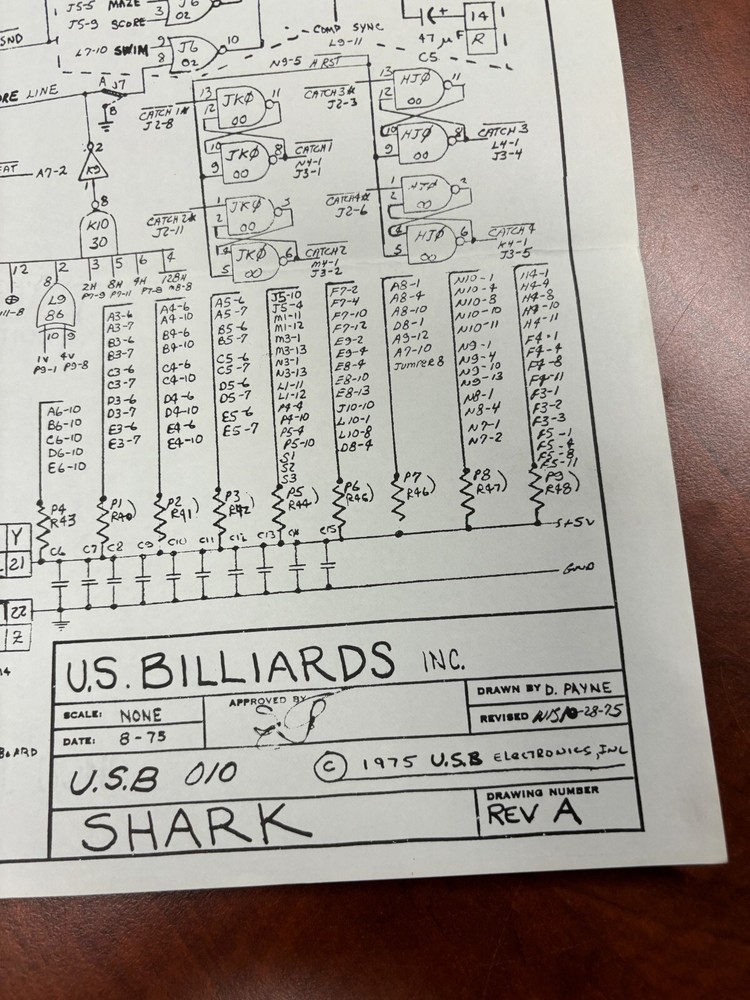 J5-5 MAZE
J5-9 SCORE
3
J6
02
SND
L7-10 SWIM
9
8
J6
02
10
COMP SYNC
L9-11
47 µF
C5
14
R
1
1
N9-5 H RST
A J7
B
LINE
CATCH 1*
J2-8
13
12
JKØ
00
11
10
9
JKØ
00
8
CATCH 1
N4-1
J3-1
CATCH 2*
J2-11
1
2
JKØ
00
3
4
5
JKØ
00
6
CATCH 2
M4-1
J3-2
CATCH 3*
J2-3
13
12
HJØ
00
11
10
9
HJØ
00
8
CATCH 3
L4-1
J3-4
CATCH 4*
J2-6
1
2
HJØ
00
4
5
HJØ
00
6
CATCH 4
K4-1
J3-5
A7-2
2
K9
1
8
K10
30
12
2
3
5
6
4
2H
P7-9
8H
P7-11
4H
P7-8
128H
M8-8
8
L9
86
10
9
1V
P9-1
4V
P9-8
A6-10
B6-10
C6-10
D6-10
E6-10
A3-6
A3-7
B3-6
B3-7
C3-6
C3-7
D3-6
D3-7
E3-6
E3-7
A4-6
A4-10
B4-6
B4-10
C4-6
C4-10
D4-6
D4-10
E4-6
E4-10
A5-6
A5-7
B5-6
B5-7
C5-6
C5-7
D5-6
D5-7
E5-6
E5-7
J5-10
J5-4
M1-11
M1-12
M3-1
M3-13
N3-1
N3-13
L1-11
L1-12
P4-4
P4-10
P5-4
P5-10
S1
S2
S3
F7-2
F7-4
F7-10
F7-12
E9-2
E9-4
E8-4
E8-10
E8-13
J10-10
L10-1
L10-8
D8-4
A8-1
A8-4
A8-10
D8-1
A9-12
A7-10
Jumper 8
N10-1
N10-4
N10-8
N10-10
N10-11
N9-1
N9-4
N9-10
N9-13
N8-1
N8-4
N7-1
N7-2
H4-1
H4-4
H4-8
H4-10
H4-11
F4-1
F4-4
F4-8
F4-11
F3-1
F3-2
F3-3
F5-1
F5-4
F5-8
F5-11
P4
R43
P1
R40)
P2
R41)
P3
R42)
P5
R44)
P6
R45)
P7
R46)
P8
R47)
P9
R48)
Y
21
C6 C7 C8 C9 C10 C11 C12 C13 C14 C15
+5V
GND
22
Z
U.S. BILLIARDS INC.
SCALE: NONE
DATE: 8-75
APPROVED BY
DRAWN BY D. PAYNE
REVISED 10-28-75
U.S.B 010
© 1975 U.S.B ELECTRONICS, INC
SHARK
DRAWING NUMBER
REV A